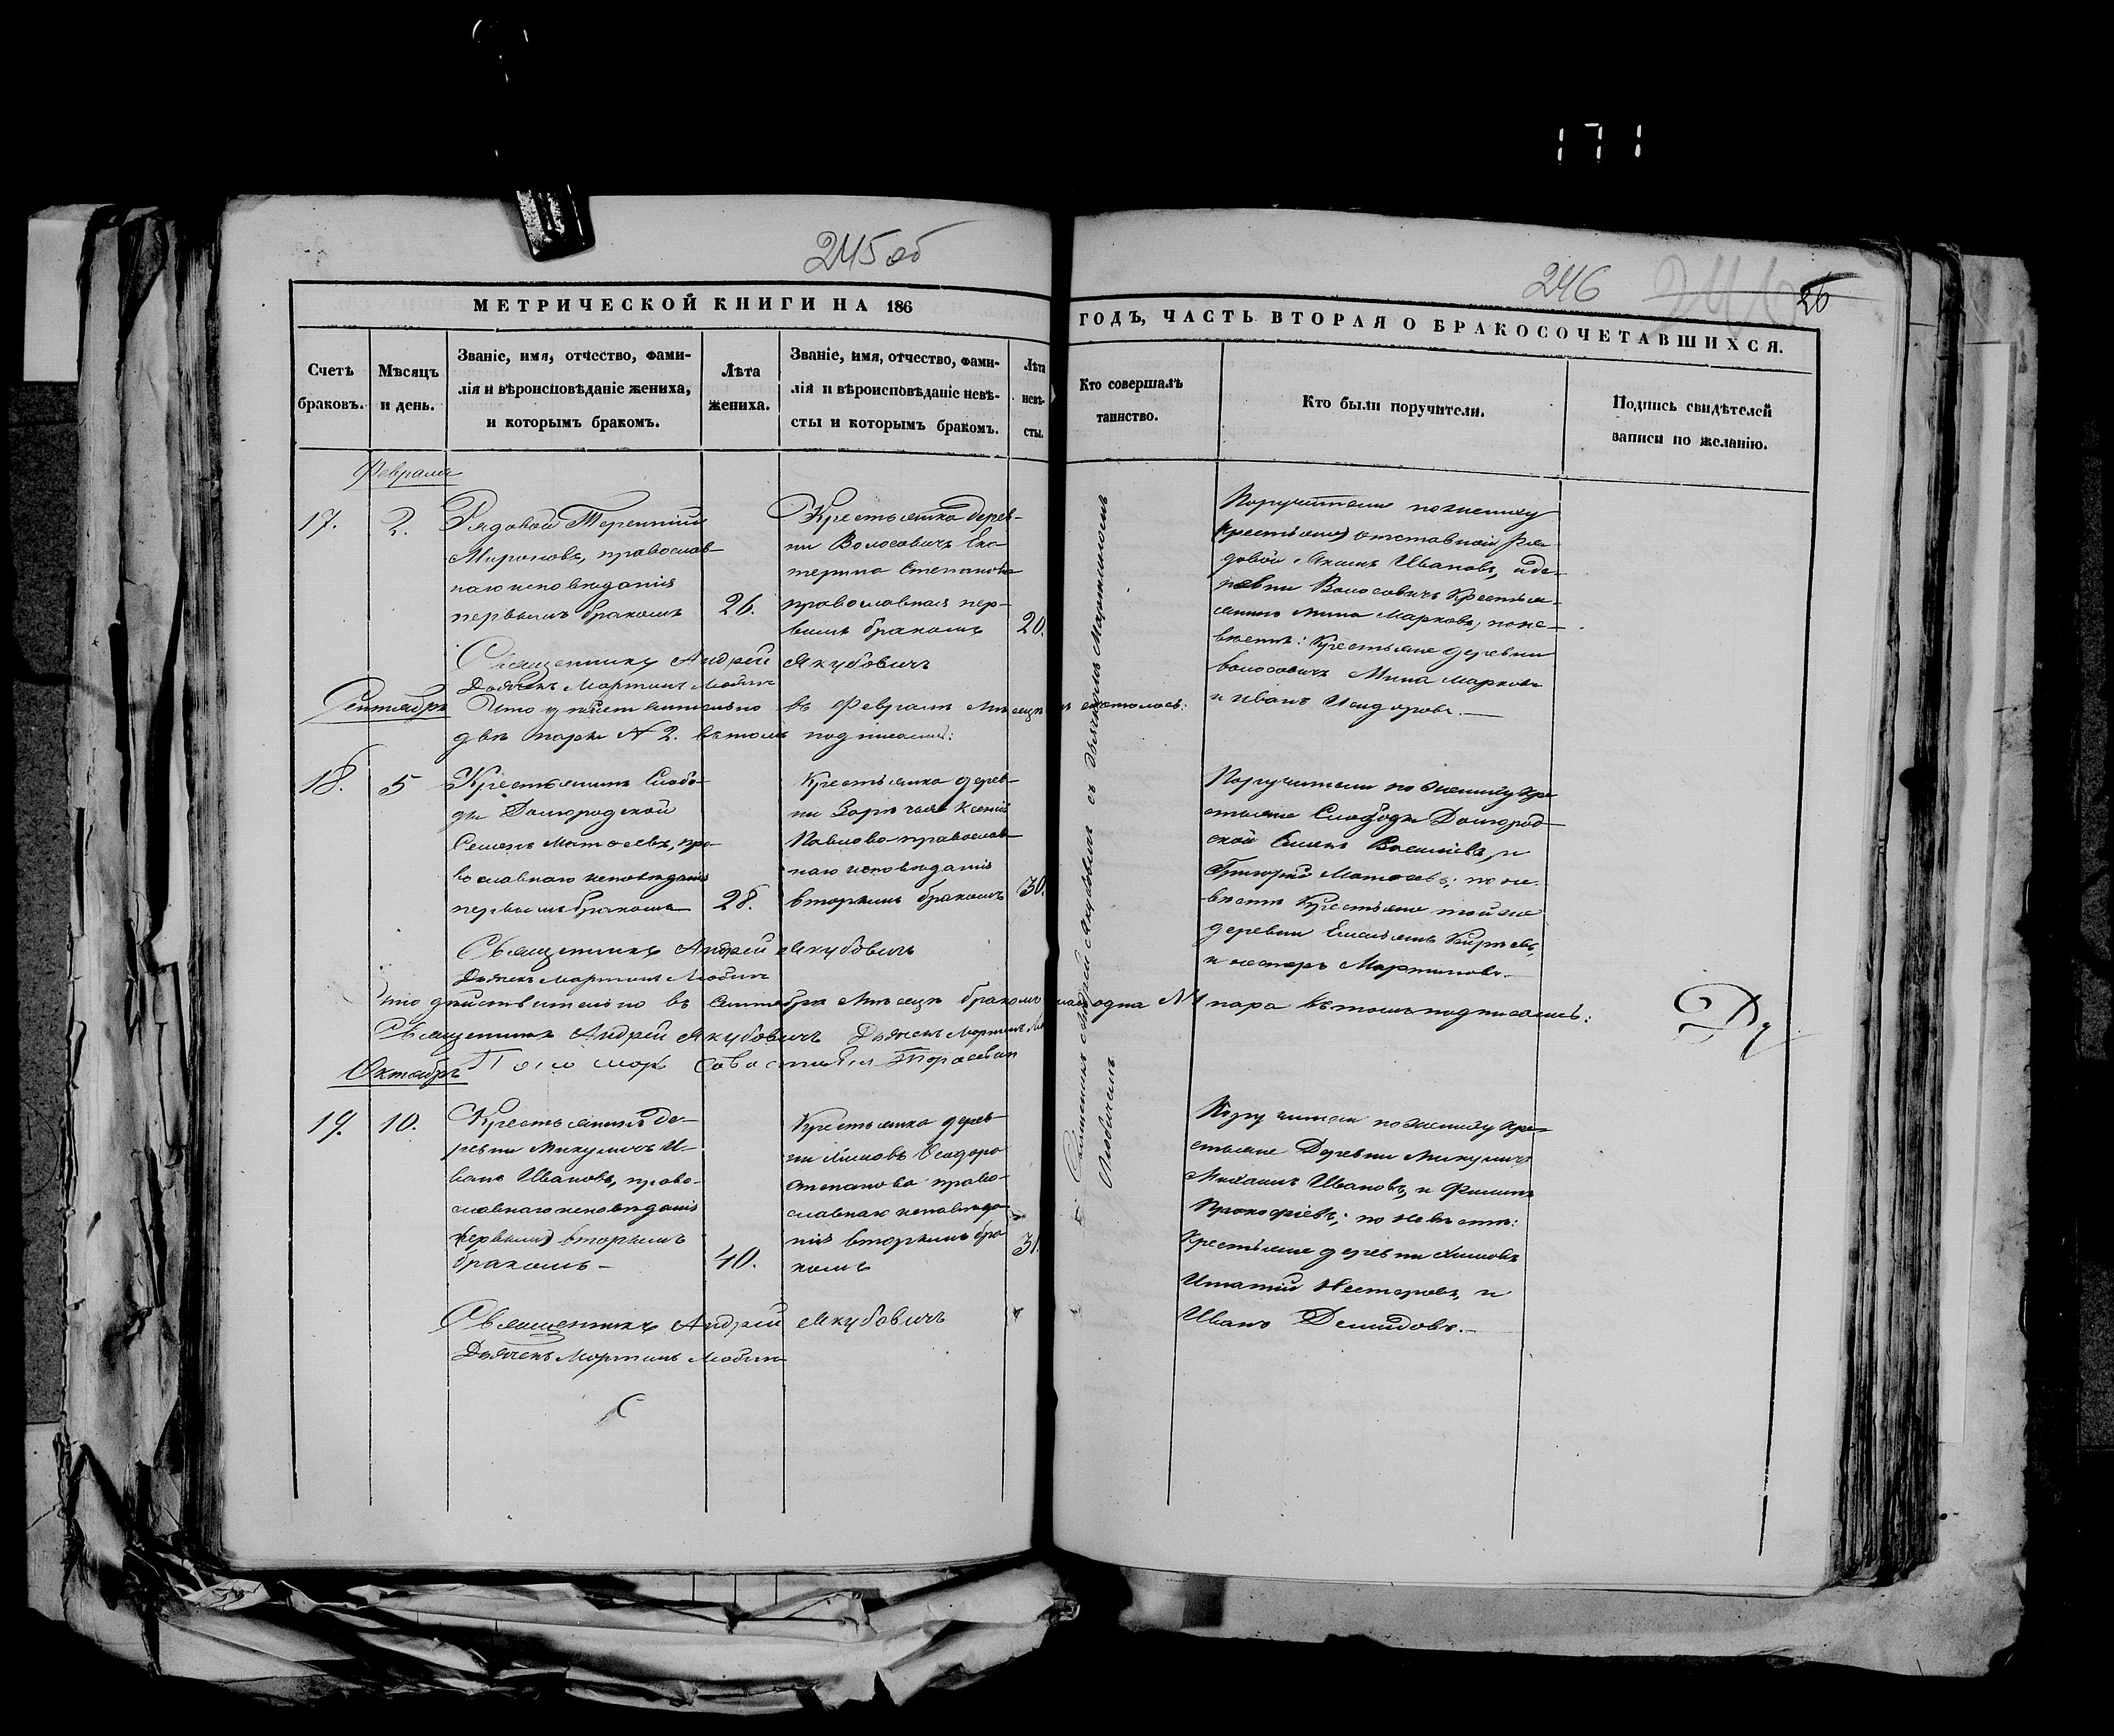 171
245 об
246
26
МЕТРИЧЕСКОЙ КНИГИ НА 186
ГОДЪ, ЧАСТЬ ВТОРАЯ О БРАКОСОЧЕТАВШИХСЯ.
Счетъ
браковъ.
Мѣсяцъ
и день.
Званіе, имя, отчество, фами-
лія и вѣроисповѣданіе жениха,
и которымъ бракомъ.
Лѣта
жениха.
Званіе, имя, отчество, фами-
лія и вѣроисповѣданіе невѣ-
сты и которымъ бракомъ.
Лѣта
невѣ-
сты.
Кто совершалъ
таинство.
Кто были поручители.
Подпись свидѣтелей
записи по желанію.
Февраль
17.
2.
Рядовой Терентій
Мироновъ, православ-
наго исповѣданія
первымъ бракомъ
26.
Крестьянка дерев-
ни Волосовичъ Ека-
терина Степанова
православная пер-
вымъ бракомъ
20.
Поручители по жениху
крестьяне) отставной ря-
довой Акимъ Ивановъ, и де-
ревни Волосовичъ крестья-
нинъ Мина Марковъ; по не-
вѣстѣ: крестьяне деревни
Волосовичъ Мина Марковъ
и Иванъ Исидоровъ.—
Священникъ Андрей Якубовичъ
Дьячекъ Мартинъ
Сентябрь
Что дѣйствительно въ Февралѣ мѣсяцѣ
двѣ пары N 2. въ томъ подписались:
18.
5
Крестьянинъ Слобо-
ды Домородской
Семенъ Матѳеевъ, пра-
вославнаго исповѣданія
первымъ бракомъ
28.
Крестьянка дерев-
ни Зарѣчья Ксенія
Павлова православ-
наго исповѣданія
вторымъ бракомъ
30.
Поручители по жениху кре-
стьяне Слободы Домород-
ской Семенъ Василіевъ, и
Григорій Матѳеевъ; по не-
вѣстѣ крестьяне той же
деревни Емельянъ
и Несторъ Мартиновъ.—
Священникъ Андрей Якубовичъ
Дьячекъ Мартинъ
Что дѣйствительно въ Сентябрѣ мѣсяцѣ одна N 1 пара въ томъ подписались:
Священникъ Андрей Якубовичъ Дьячекъ Мартинъ
Пономарь
Октябрь
19.
10.
Крестьянинъ де-
ревни Микуличъ И-
ванъ Ивановъ, право-
славнаго исповѣданія
(первымъ) вторымъ
бракомъ—
40.
Крестьянка дерев-
ни Ѳеодора
Степанова право-
славнаго исповѣда-
нія вторымъ бра-
комъ
31.
Поручители по жениху кре-
стьяне Деревни Микуличъ
Михаилъ Ивановъ, и Филипъ
Прокофіевъ; по невѣстѣ:
Крестьяне деревни
Игнатій Нестеровъ, и
Иванъ Демидовъ.—
Священникъ Андрей Якубовичъ
Дьячекъ Мартинъ
Священникъ Андрей Якубовичъ съ дьячкомъ Мартиномъ